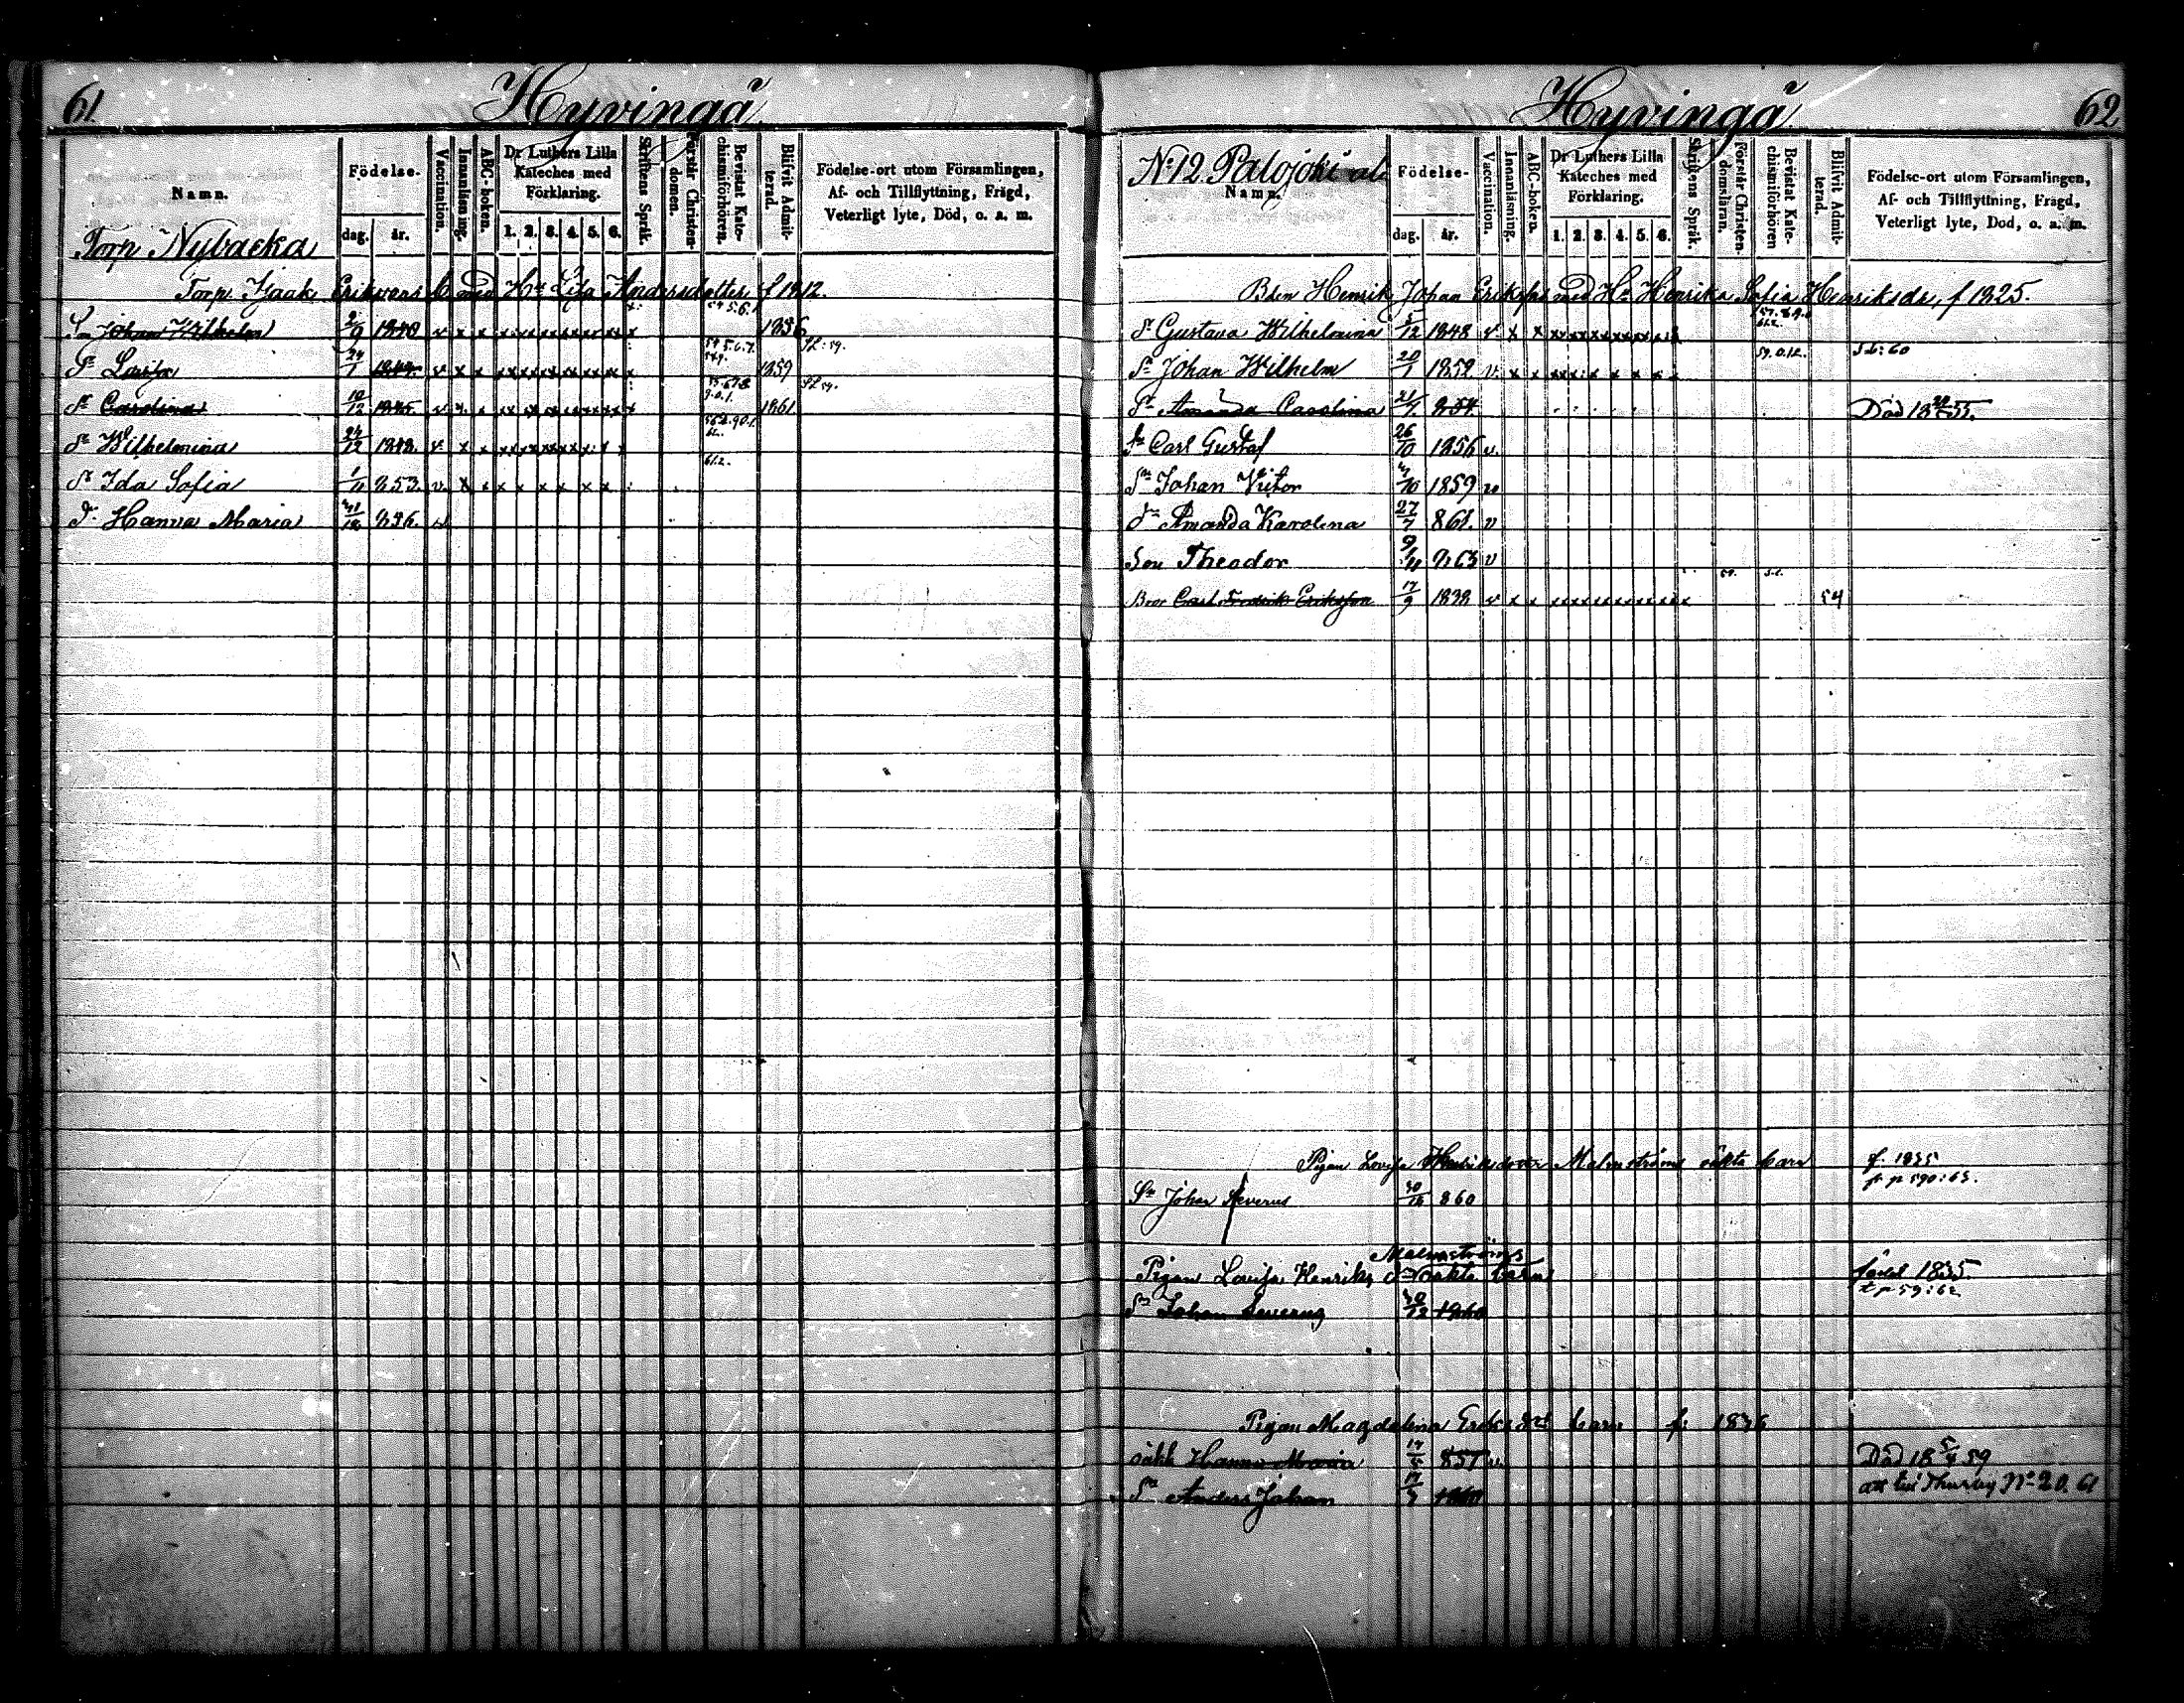 61 Hyvingå
Namn.
Födelse-
dag. år.
Vaccination.
Innanläsning.
ABC-boken.
Dr Luthers Lilla Kateches med Förklaring.
1. 2. 3. 4. 5. 6.
Skriftens Språk.
Förstår Christendomen.
Bevistat Katechismiförhören.
Blifvit Admitterad.
Födelse-ort utom Församlingen,
Af- och Tillflyttning, Frägd,
Veterligt lyte, Död, o. a. m.
Torp Nybacka
Torp. Isaak Eriksons b. med Hu Lisa Andersdotter f 1812.
Sn Johan Wilhelm 2/9 1840 v x x 1856
Dr Lovisa 24/1 v x x 1859
Dr Carolina 10/12 1845 v x x 1861
Dr Wilhelmina 24/12 1848. v x x
Dr Ida Sofia 1/11 853. v. x x x x x x x x
Dr Hanna Maria 856. v
Hyvingå 62
No 12 Palojoki
Namn.
Födelse-
dag. år.
Vaccination.
Innanläsning.
ABC-boken.
Dr Luthers Lilla Kateches med Förklaring.
1. 2. 3. 4. 5. 6.
Skriftens Språk.
Förstår Christendomsläran.
Bevistat Katechismiförhören
Blifvit Admitterad.
Födelse-ort utom Församlingen,
Af- och Tillflyttning, Frägd,
Veterligt lyte, Död, o. a. m.
Bden Henrik Johan Eriksson med Hu Henrika Sofia Henriksdr, f 1825.
Dr Gustava Wilhelmina 5/12 1848 v. x x
Sn Johan Wilhelm 20/1 1852 v.
Dr Amanda Carolina 21/7 854. Död
Sn Carl Gustaf 26/10 1856 v.
Sn Johan Victor 1859 v
Dr Amanda Karolina 27/7 861. v
Son Theodor 9/11 863 v
Bror Carl Fredrik Eriksson 17/9 1838 v x x 54
Pigan Lovisa Henriksdotter Malmströms oäkta barn f. 1835
Sn Johan Severus 30/12 860
Malmströms
Pigan Lovisa Henriks Dr oäkta barn född 1835.
Sn Johan Severus 30/12 1860
Pigan Magdalena Eriksdrs barn f: 1836
oäkt Hanna Maria 857 v. Död 18 5/4 59
Sn Anders Johan 1860